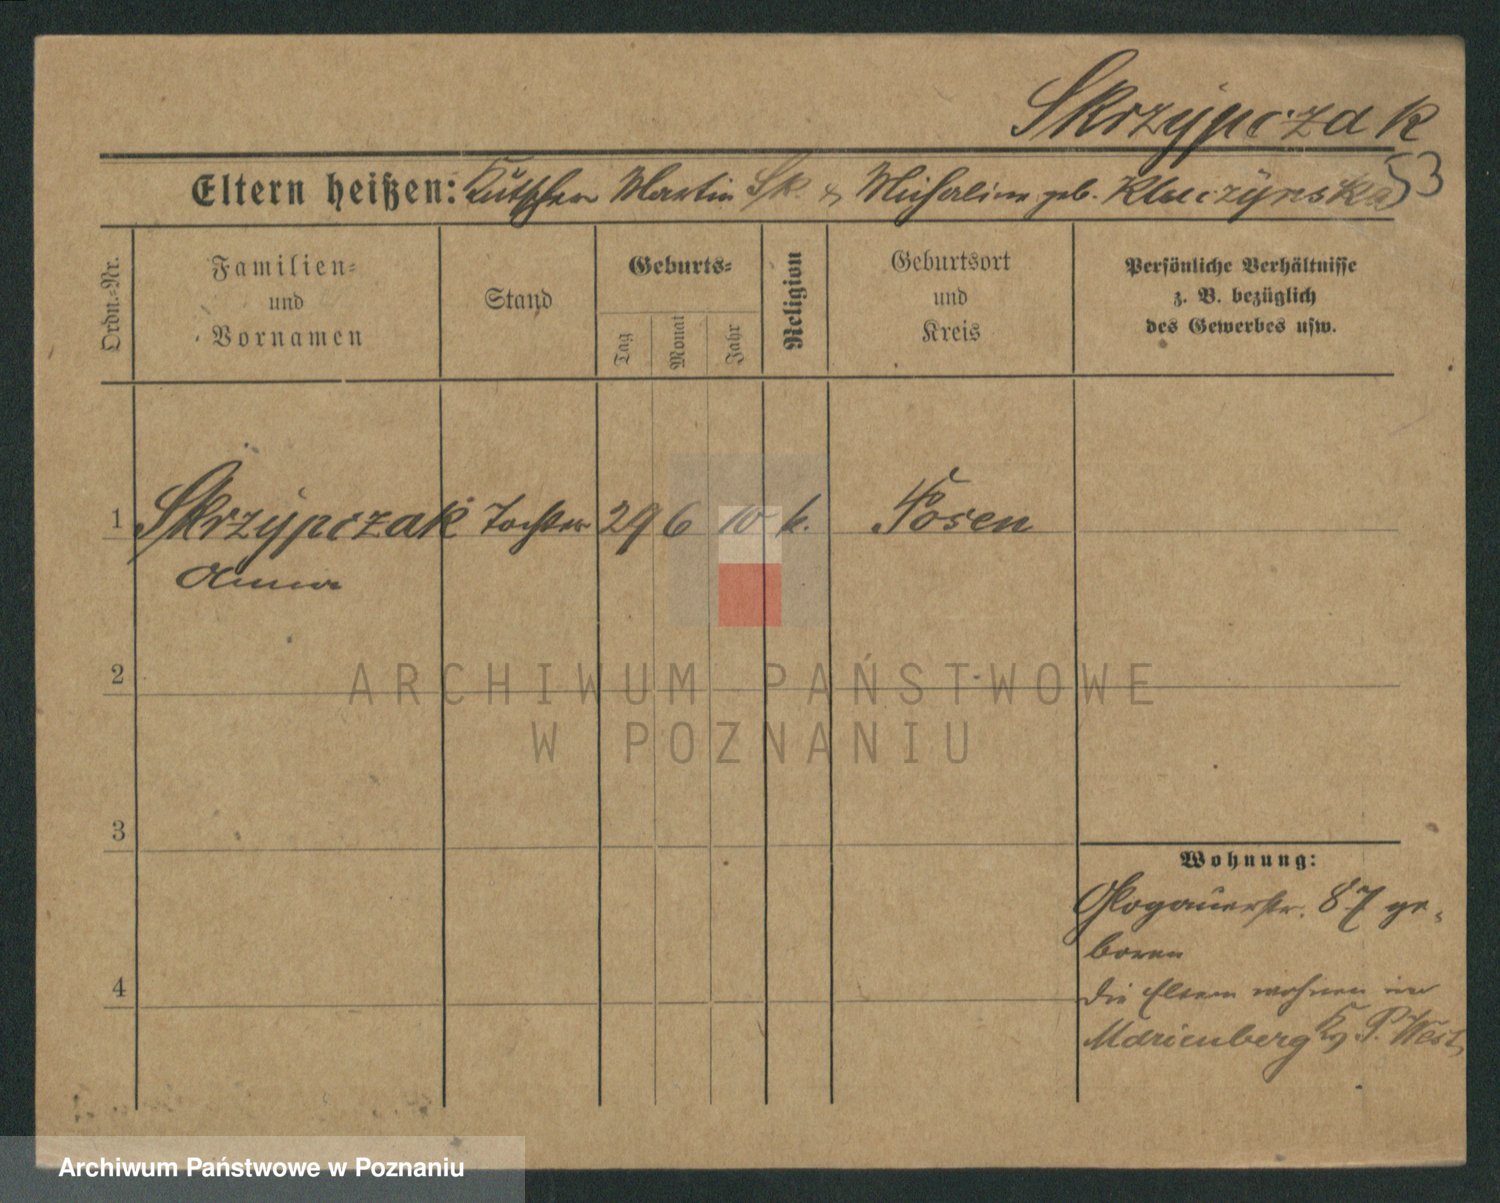 Skrzypczak
53
Eltern heißen: Kutscher Martin Sk. & Michaline geb. Kluczynska
Ordn.-Nr.
Familien-
und
Vornamen
Stand
Geburts-
Tag
Monat
Jahr
Religion
Geburtsort
und
Kreis
Persönliche Verhältnisse
z. B. bezüglich
des Gewerbes usw.
1 Skrzypczak Tochter 29 6 10 k. Posen
Anna
ARCHIWUM PAŃSTWOWE
W POZNANIU
2
3
4
Wohnung:
Glogauerstr. 87 ge-
boren
die Eltern wohnen in
Marienberg Kr. P. West
Archiwum Państwowe w Poznaniu